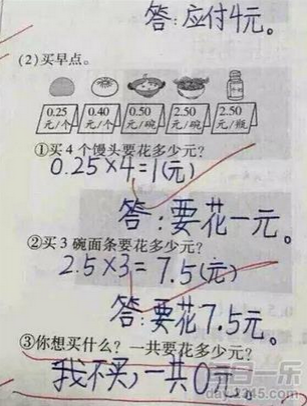 答:应付4元。
(2)买早点。
0.25元/个 0.40元/个 0.50元/碗 2.50元/碗 2.50元/瓶
①买4个馒头要花多少元?
0.25×4=1(元)
答:要花一元。
②买3碗面条要花多少元?
2.5×3=7.5(元)
答:要花7.5元。
③你想买什么?一共要花多少元?
我不买,一共0元。
每日一乐
day.2345.com